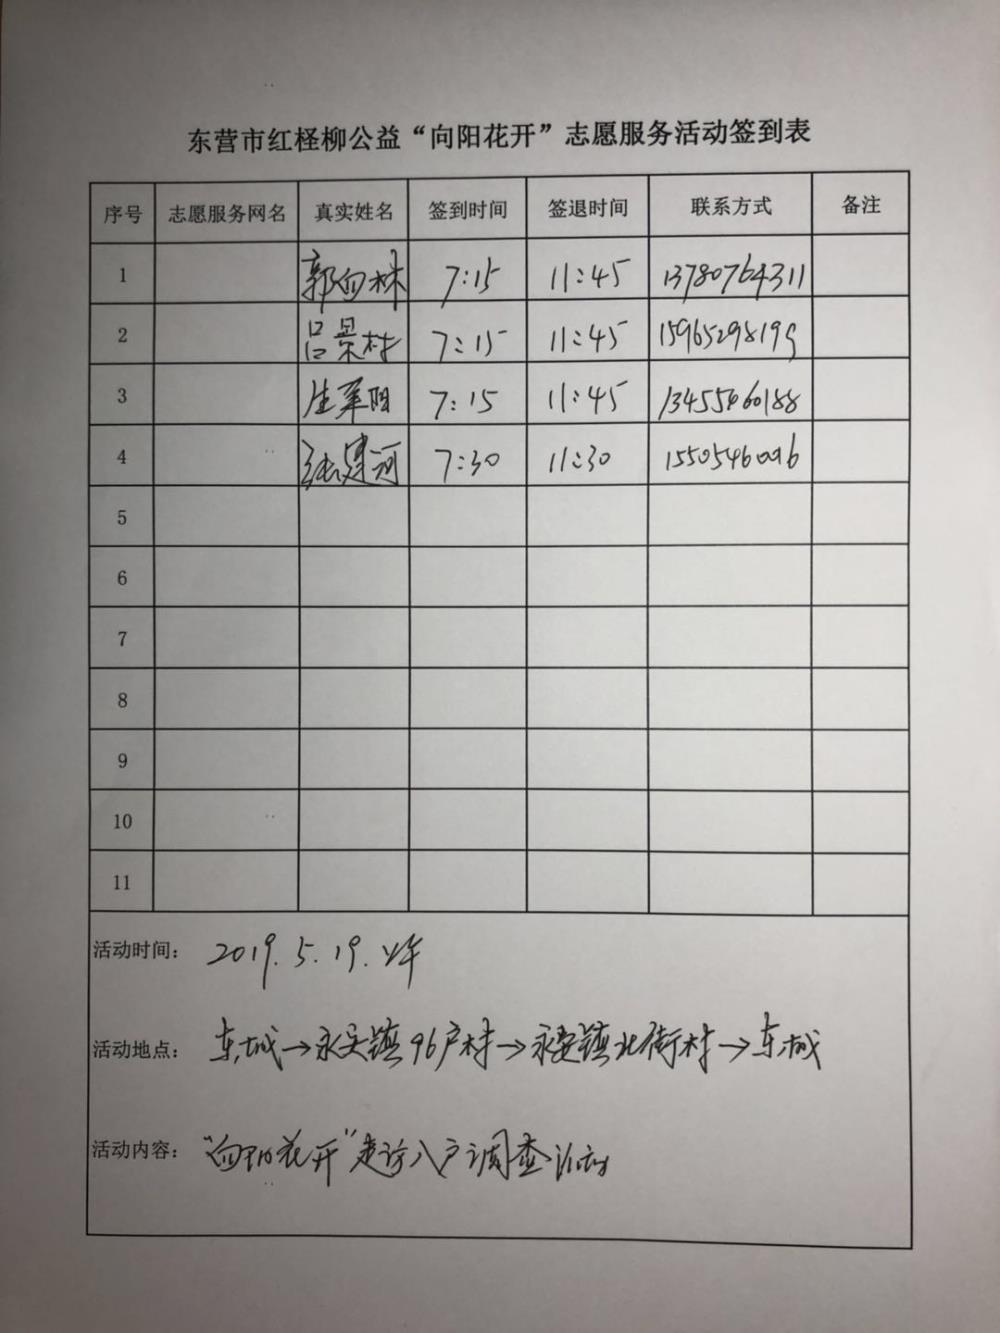 东营市红柽柳公益“向阳花开”志愿服务活动签到表
序号 志愿服务网名 真实姓名 签到时间 签退时间 联系方式 备注
1 郭向林 7:15 11:45 13780764311
2 吕景村 7:15 11:45 15965298199
3 生军阳 7:15 11:45 13455460188
4 张建河 7:30 11:30 15505460096
5
6
7
8
9
10
11
活动时间： 2019.5.19.上午
活动地点： 东城→永安镇96户村→永安镇北街村→东城
活动内容： “向阳花开”走访入户调查活动